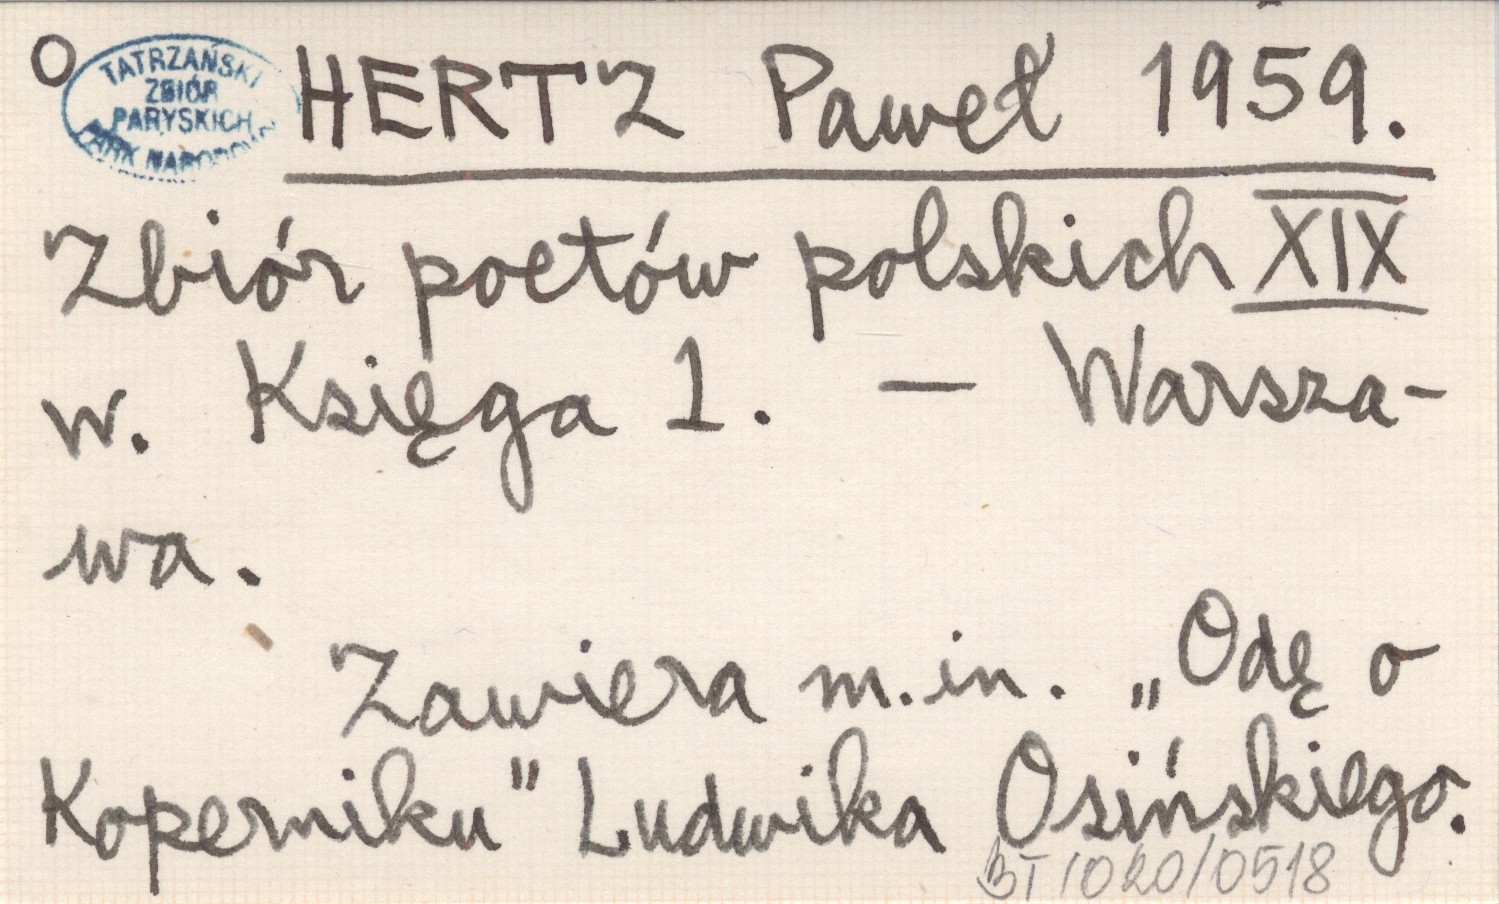 O
TATRZAŃSKI
ZBIÓR
PARYSKICH
PARK NARODOWY
HERTZ Paweł 1959.
Zbiór poetów polskich XIX
w. Księga 1. — Warsza-
wa.
Zawiera m.in. „Odę o
Koperniku" Ludwika Osińskiego.
BT/020/0518